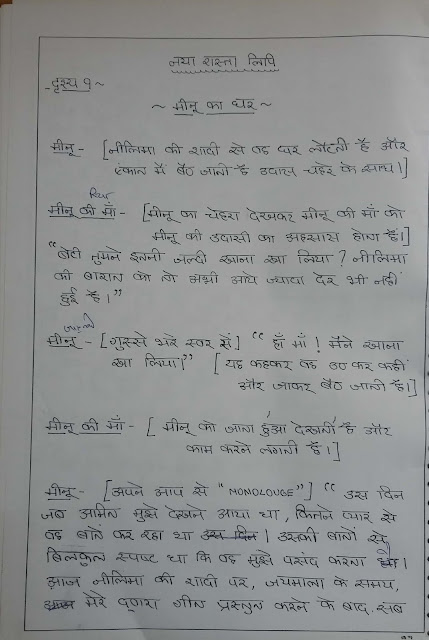 नया रास्ता लिपि
दृश्य १ ~
~ मीनू का घर ~
मीनू - [नीलिमा की शादी से वह घर लौटती है और
एकांत में बैठ जाती है उदास चहरे के साथ।]
मीनू की माँ - [मीनू का चेहरा देखकर मीनू की माँ को
मीनू की उदासी का अहसास होता है।]
“बेटी तुमने इतनी जल्दी खाना खा लिया? नीलिमा
की बारात को तो अभी आये ज्यादा देर भी नहीं
हुई है।”
मीनू - [गुस्से भरे स्वर में] “हाँ माँ! मैंने खाना
खा लिया।” [यह कहकर वह उठ कर कहीं
और जाकर बैठ जाती है।]
मीनू की माँ - [मीनू को जाता हुआ देखती है और
काम करने लगती है।]
मीनू - [अपने आप से “MONOLOUGE”] “उस दिन
जब अमित मुझे देखने आया था, कितने प्यार से
वह बातें कर रहा था उस दिन। उसकी बातों से
बिलकुल स्पष्ट था कि वह मुझे पसंद करता है।
आज नीलिमा की शादी पर, जयमाला के समय,
मेरे द्वारा गीत प्रस्तुत करने के बाद, सब